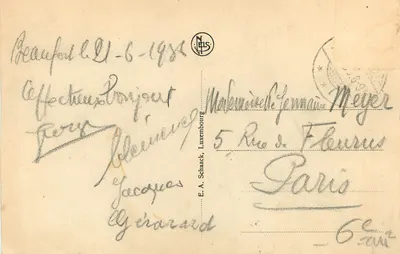 Beaufort le 21-6-1938
affectueux Bonjour
Clémence
Jacques
Gérard
NELS
E. A. Schaack, Luxembourg
Mademoiselle Germaine Meyer
5 Rue de Fleurus
Paris
6e